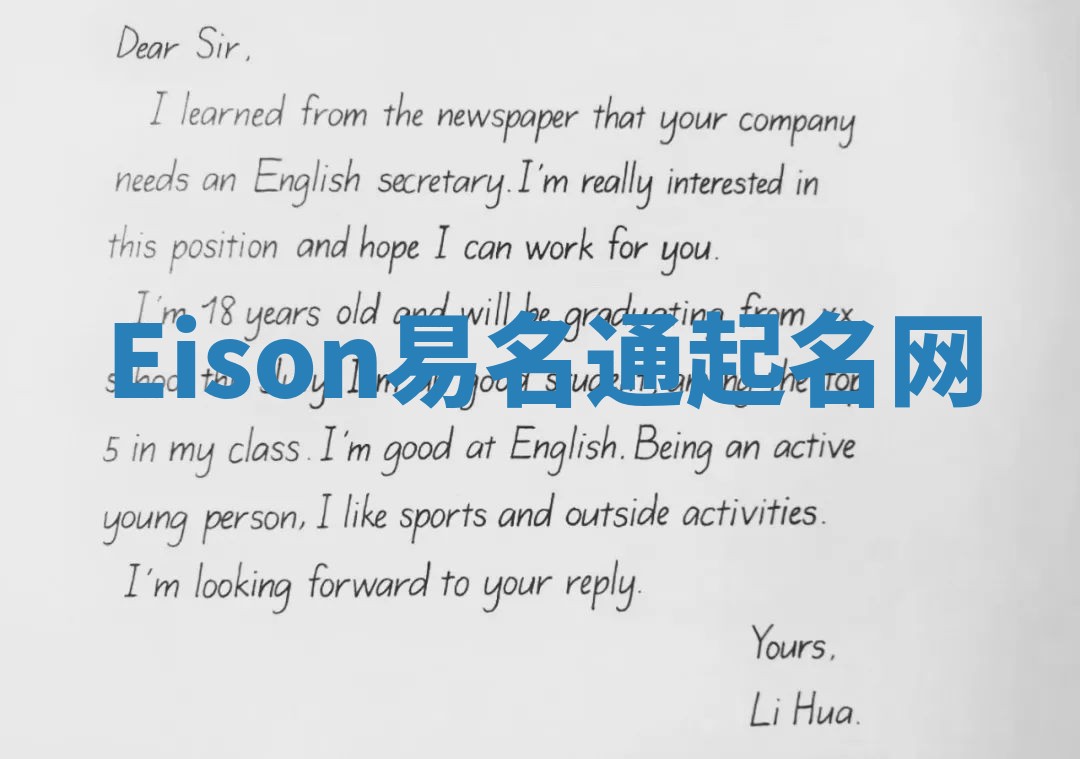 Dear Sir,
I learned from the newspaper that your company
needs an English secretary. I'm really interested in
this position and hope I can work for you.
I'm 18 years old and will be graduating from xx
Eison易名通起名网
school this July. I'm a good student, among the top
5 in my class. I'm good at English. Being an active
young person, I like sports and outside activities.
I'm looking forward to your reply.
Yours,
Li Hua.